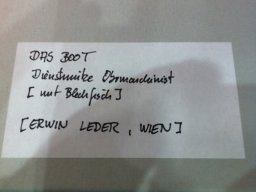 DAS BOOT
Dienstmütze Obermaschinist
[mit Blechfisch]
[ERWIN LEDER, WIEN]